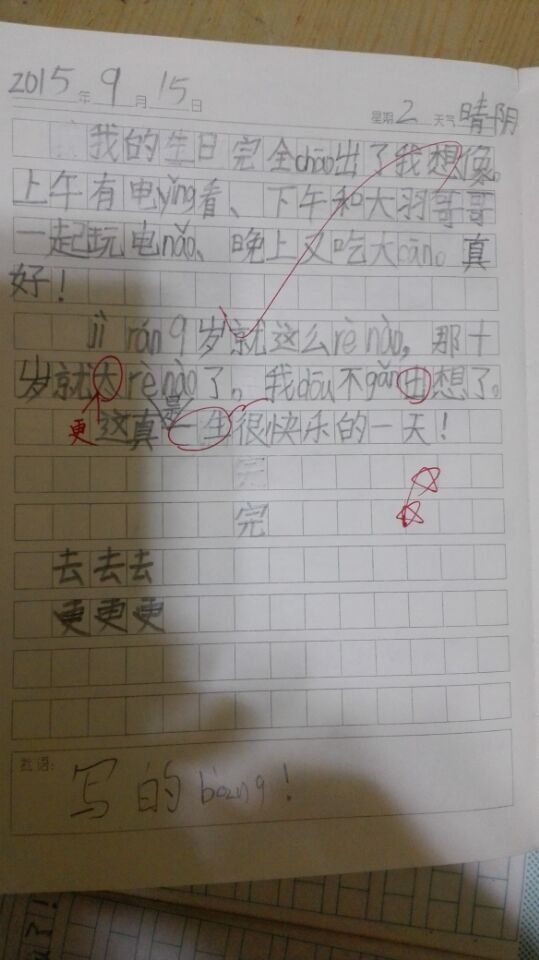 2015年9月15日 星期2 天气晴阴
我的生日完全chāo出了我想像。
上午有电yǐng看、下午和大羽哥哥
一起玩电nǎo、晚上又吃大cān。真
好！
jì rán 9岁就这么rè nào，那十
岁就大rè nào了。我dōu不gǎn田想了。
更 这真是一生很快乐的一天！
完
完
去去去
更更更
批语：
写的bàng！